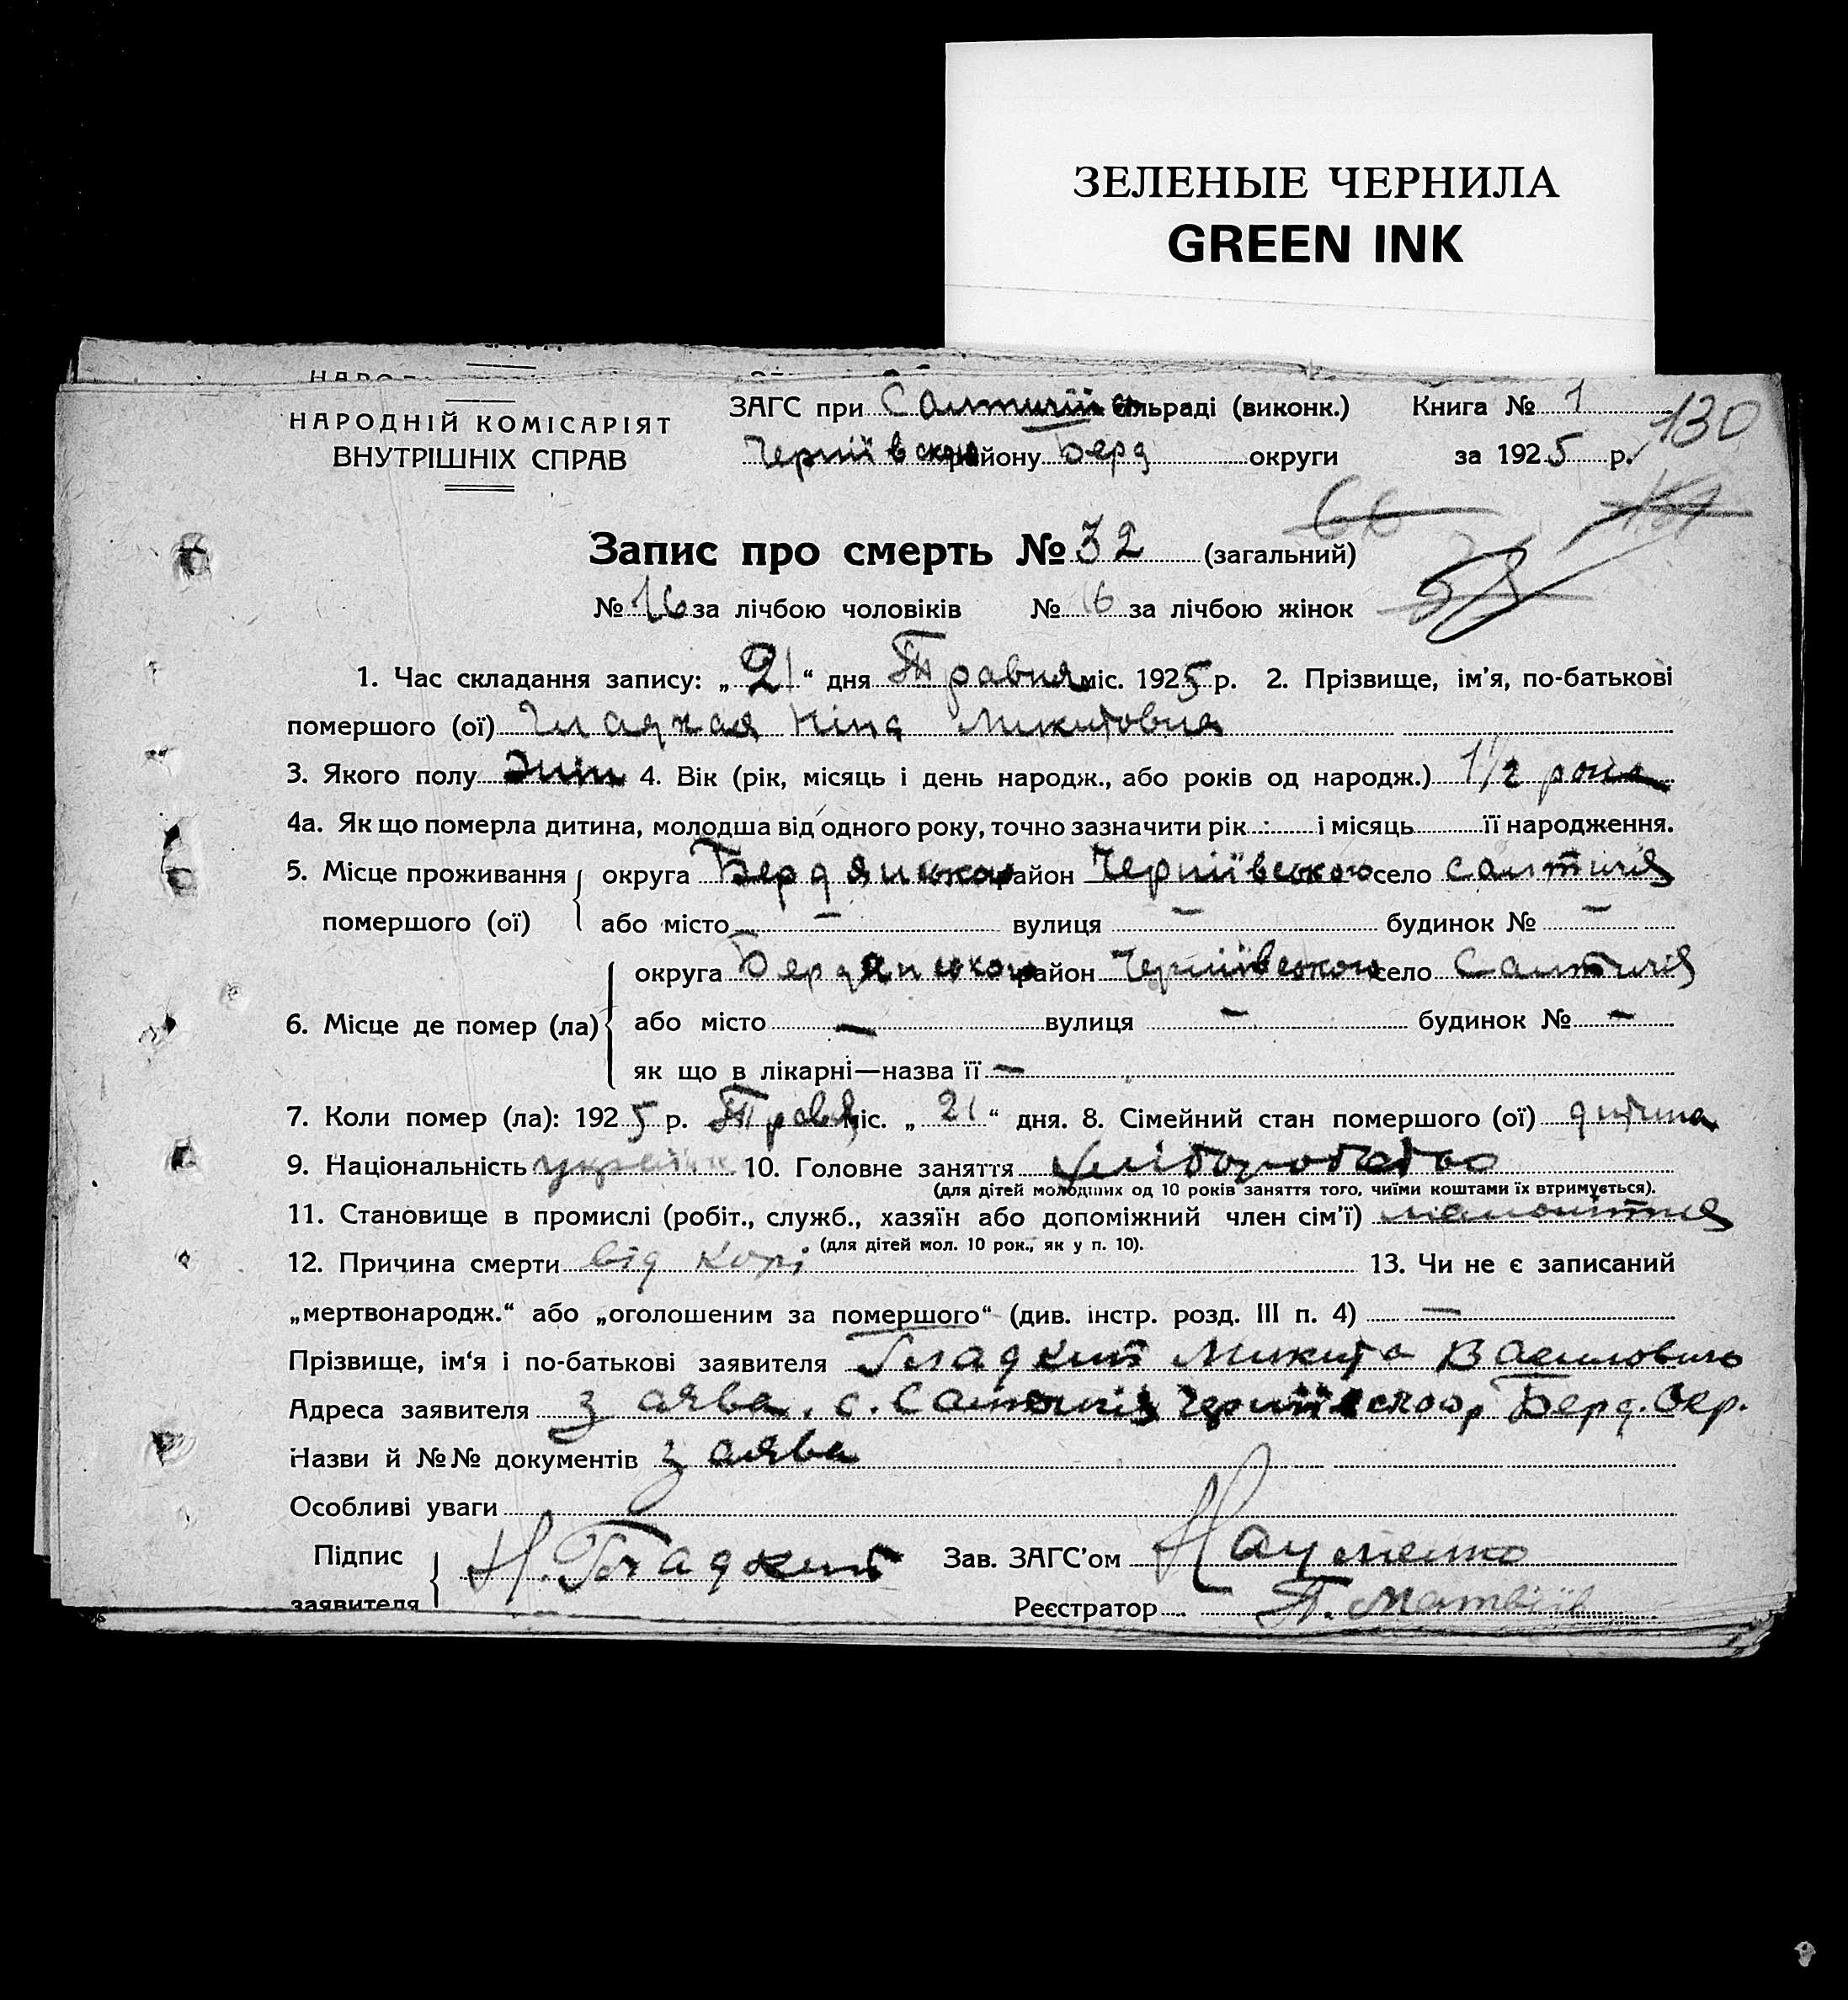 ЗЕЛЕНЫЕ ЧЕРНИЛА
GREEN INK
НАРОДНІЙ КОМІСАРІЯТ
ВНУТРІШНІХ СПРАВ
ЗАГС при сільраді (виконк.) Книга № 1
130
району Берд округи за 1925 р.
66
Запис про смерть № 32 (загальний)
№ 16 за лічбою чоловіків № 16 за лічбою жінок
1. Час складання запису: „21“ дня Травня міс. 1925 р. 2. Прізвище, ім'я, по-батькові
помершого (ої) Гладкая Ніна Микитовна
3. Якого полу жін 4. Вік (рік, місяць і день народж., або років од народж.) 1½ рока
4а. Як що померла дитина, молодша від одного року, точно зазначити рік і місяць її народження.
5. Місце проживання помершого (ої) округа Бердянською район Черніївського село Салтичія
або місто — вулиця — будинок № —
6. Місце де помер (ла) округа Бердянською район Черніївського село Салтичія
або місто — вулиця — будинок № —
як що в лікарні—назва її —
7. Коли помер (ла): 1925 р. Травя міс. „21“ дня. 8. Сімейний стан помершого (ої) дитина
9. Національність 10. Головне заняття хліборобство
(для дітей молодших од 10 років заняття того, чиїми коштами їх втримується).
11. Становище в промислі (робіт., служб., хазяїн або допоміжний член сім'ї)
(для дітей мол. 10 рок., як у п. 10).
12. Причина смерти від корі 13. Чи не є записаний
„мертвонародж.“ або „оголошеним за помершого“ (див. інстр. розд. III п. 4) —
Прізвище, ім'я і по-батькові заявителя Гладкий Микита Василовичь
Адреса заявителя заява. с. Салтичія Берд. Окр.
Назви й №№ документів заява
Особливі уваги
Підпис заявителя Н. Гладкий Зав. ЗАГС'ом Науменко
Реєстратор П. Матвіїв